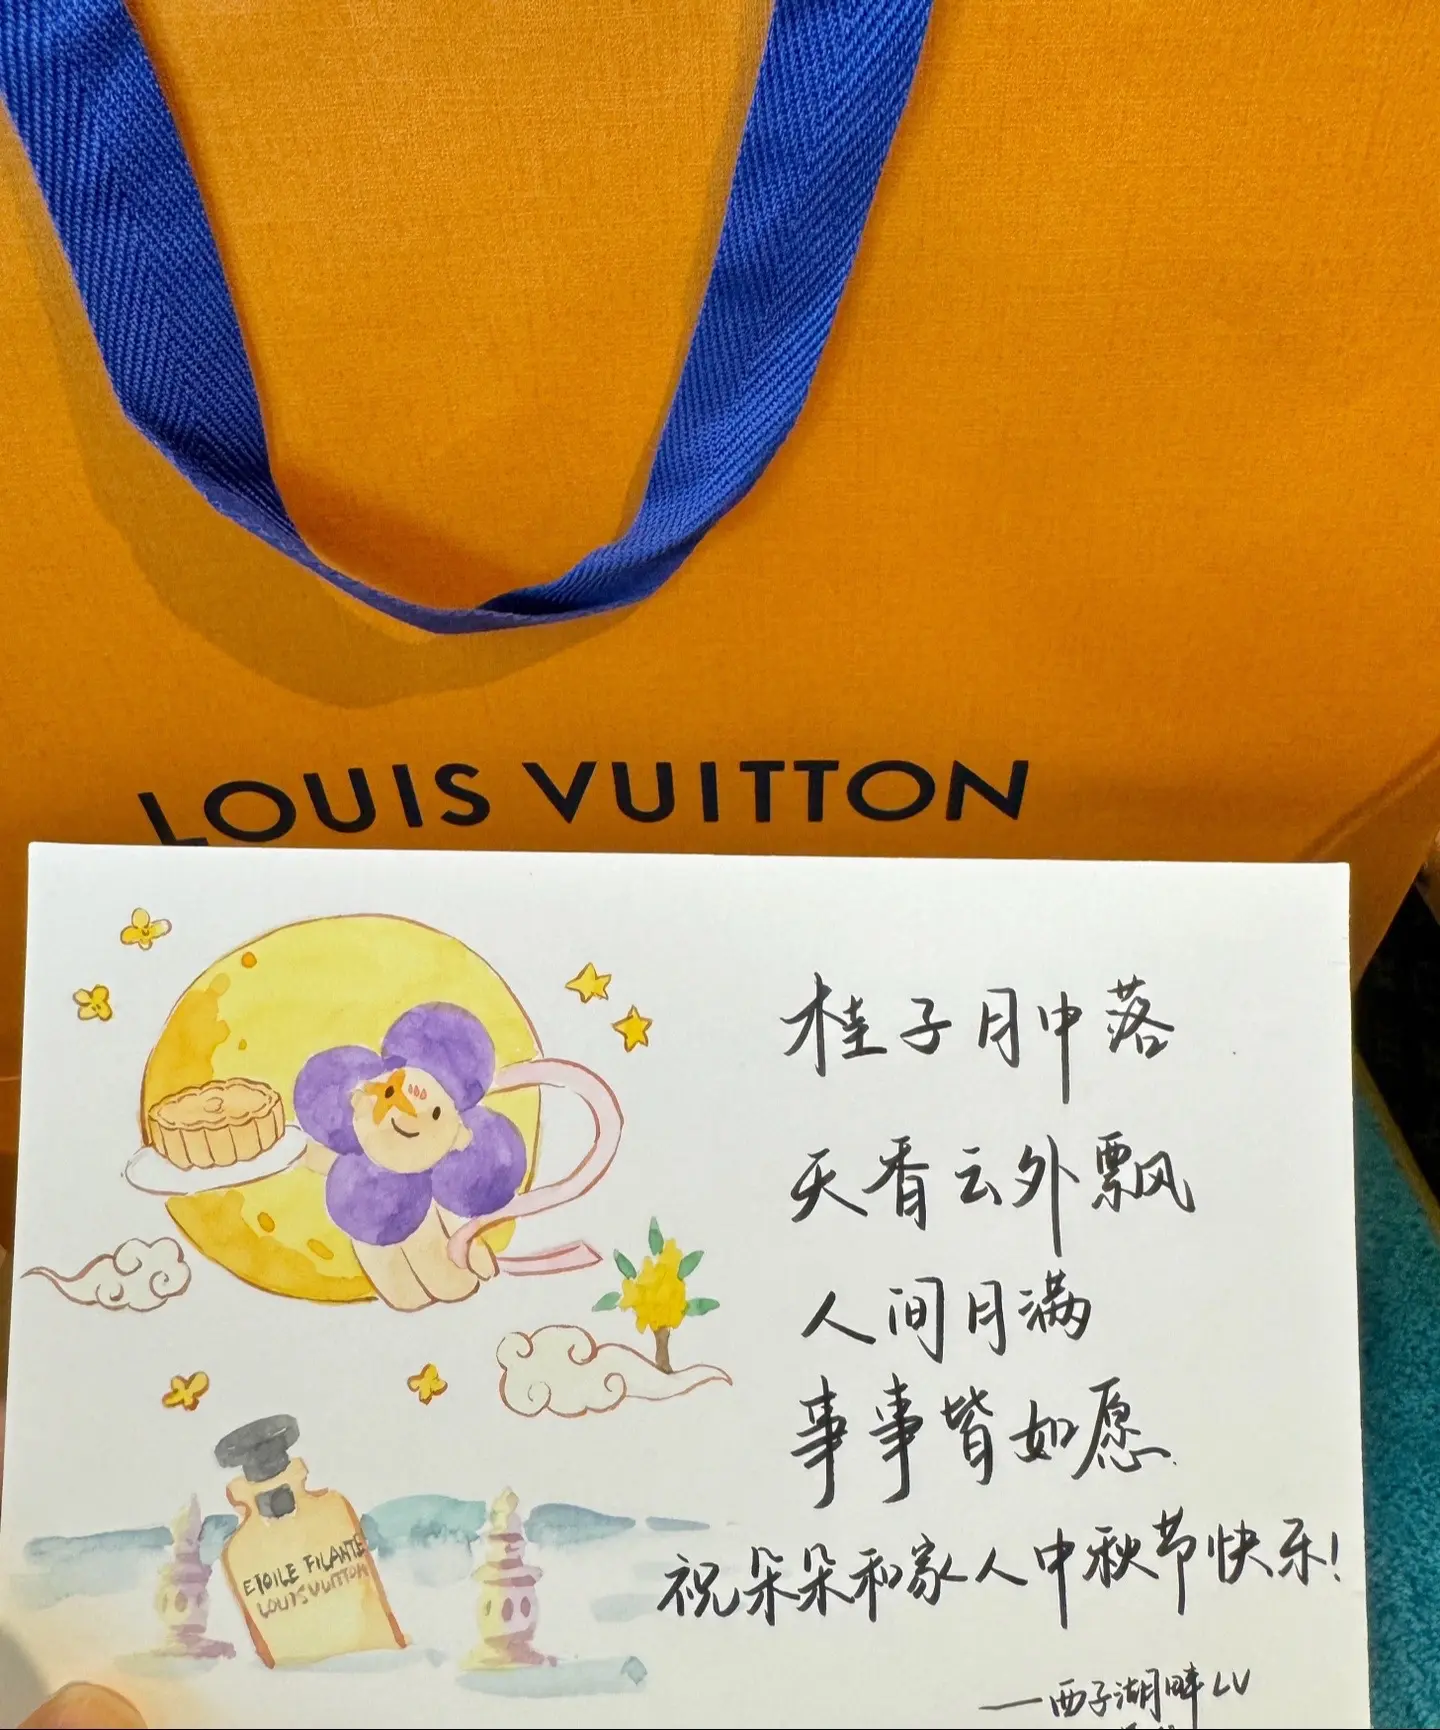 LOUIS VUITTON
桂子月中落
天香云外飘
人间月满
事事皆如愿
祝朵朵和家人中秋节快乐!
——西子湖畔LV
ETOILE FILANTE
LOUIS VUITTON